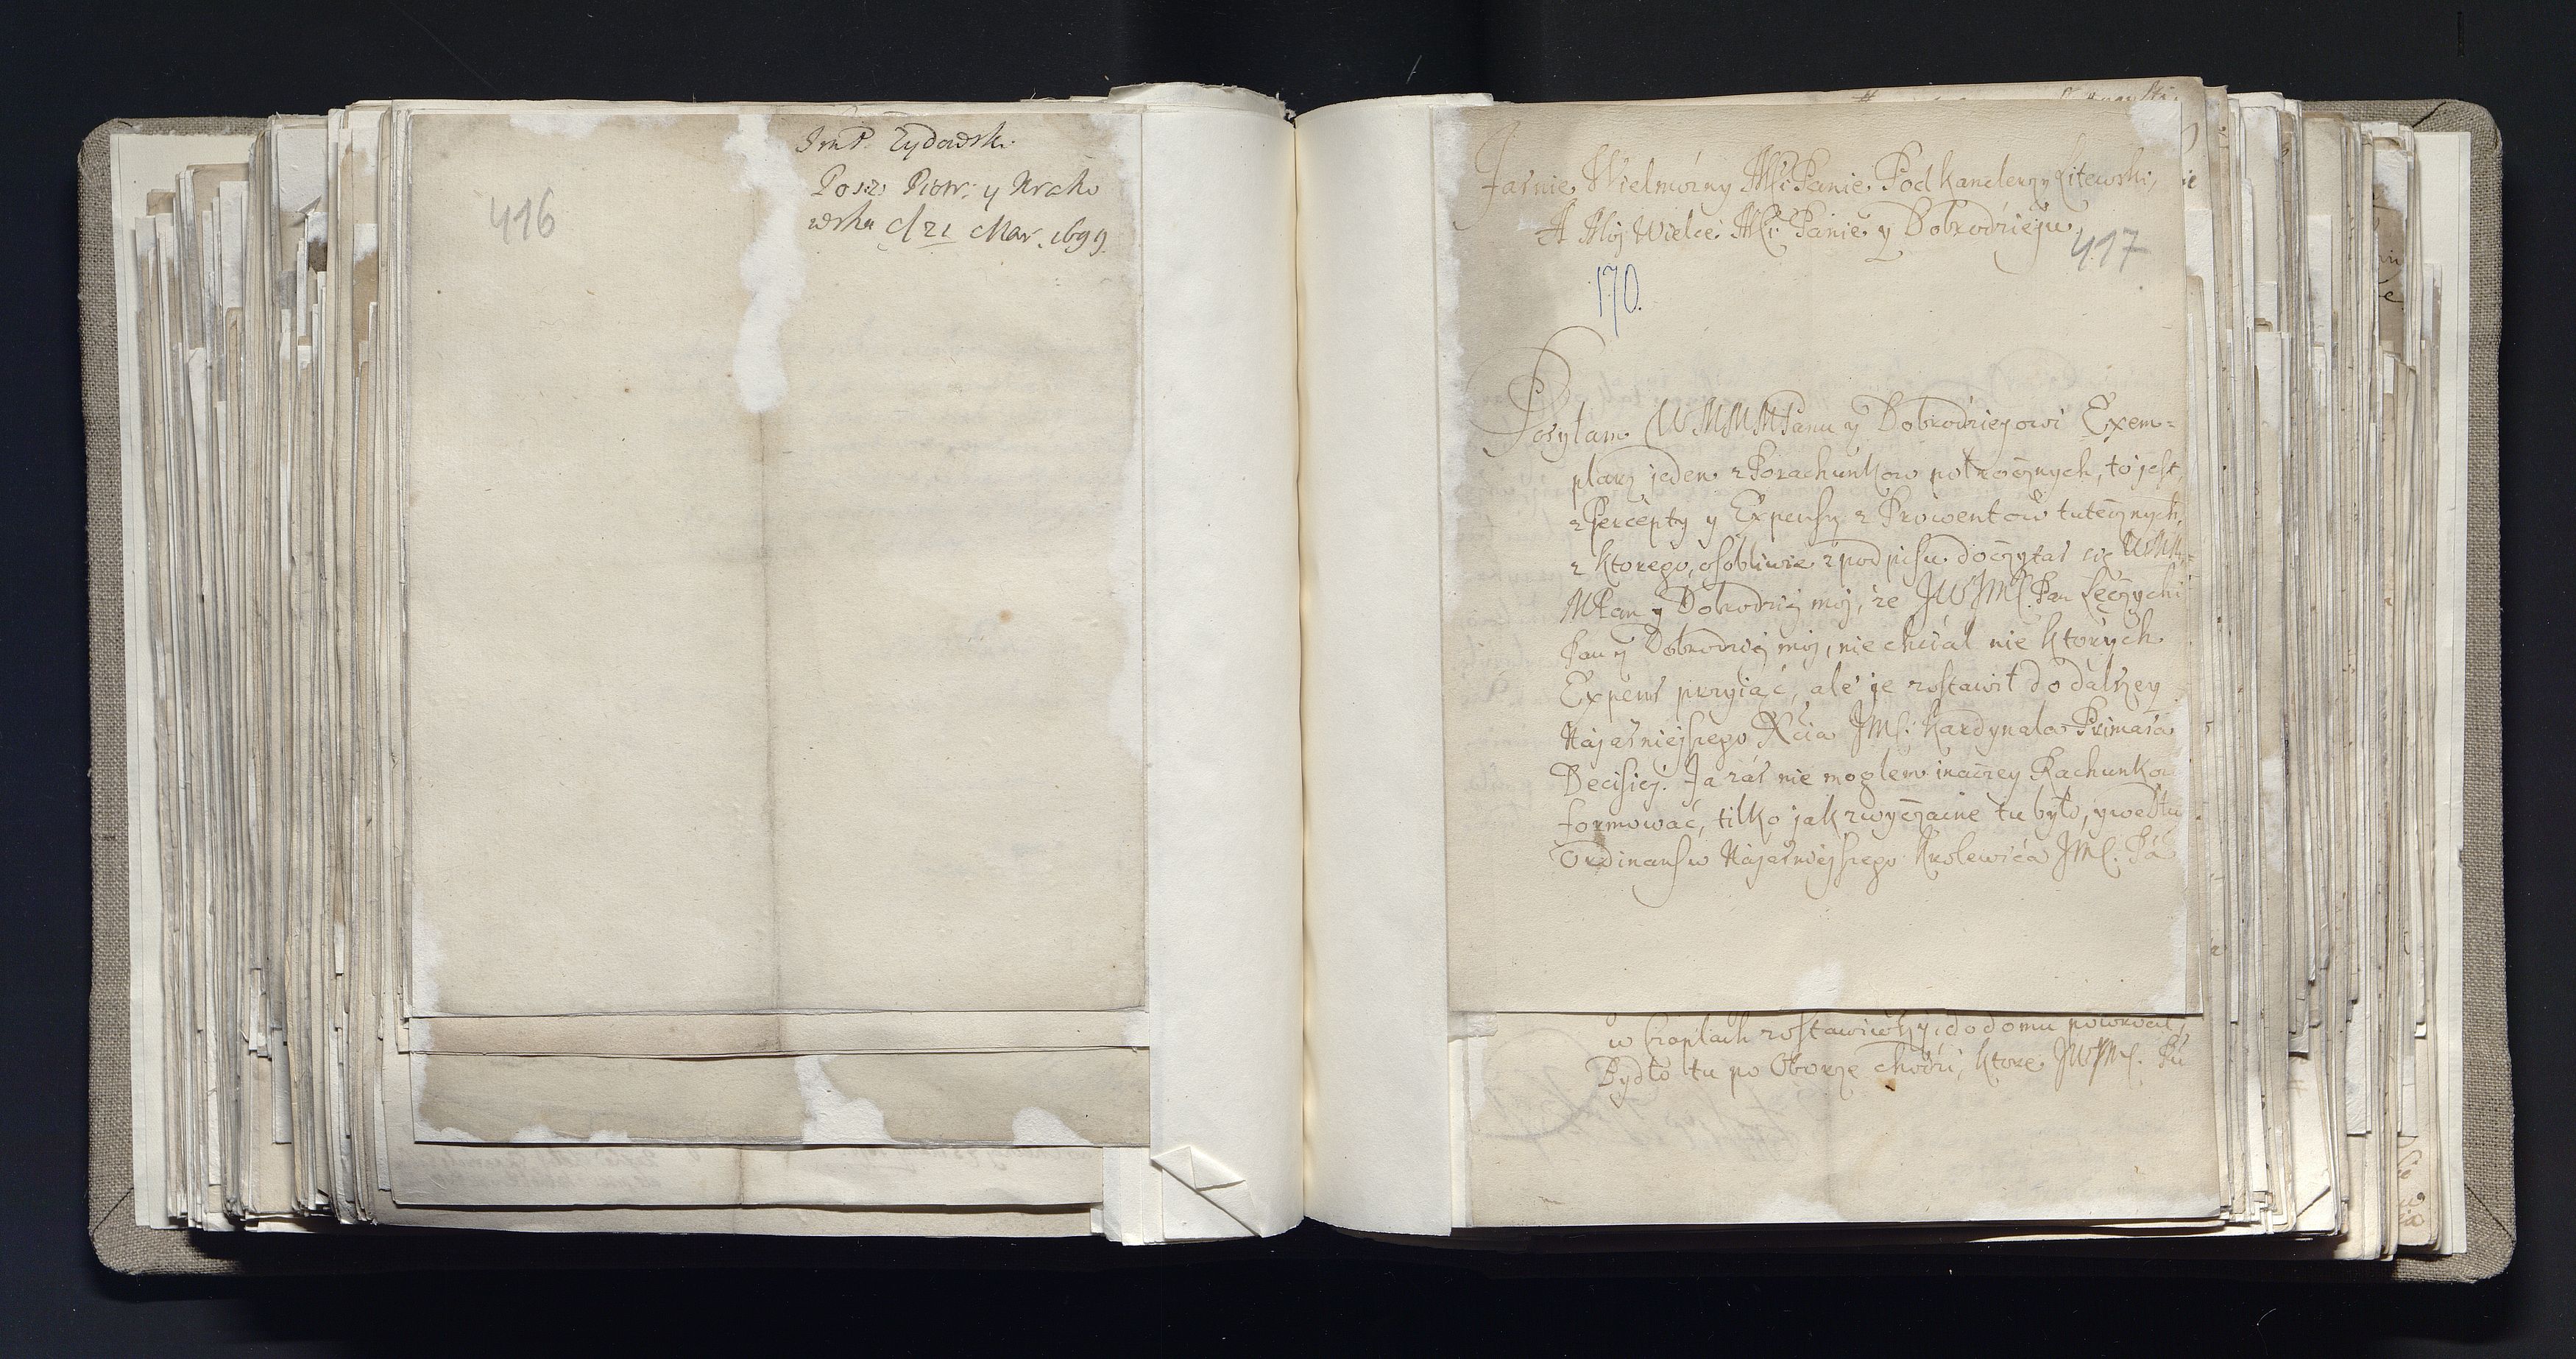 416
Im P. Zydowski
Posz. Piotr: y Krako
wska d 21 Mar. 1699
Jasnie Wielmozny Mści Panie Podkanclerzy Litewski,
A Moj Wielce Mści Panie y Dobrodzieju,
417
170.
Posyłam WMMMPanu y Dobrodziejowi Exem=
plarz jeden z Porachunkow pułrocznych, to jest,
z Percepty y Expensy z Prowentow tutecznych,
z ktorego, osobliwie z podpisu doczytas się WMM
MPan y Dobrodziej moj, że JWJMś. Pan Łęczycki
Pan y Dobrodziej moj, nie chciał nie ktorych
Expens przyiąć, ale je zostawił do dalszey
Najasniejszego Xcia JMś. Kardynała Primasa
Decisiej. Ja zas nie mogłem inaczey Rachunkow
formować, tilko jak zwyczaine tu było, y wedłu
Ordinansu Najasniejszego Krolewica JMś. Pa
w Czaplach zostawiwszy, do domu powrocał,
Bydło tu po Oborze chodzi, ktore JWJMś. Pu